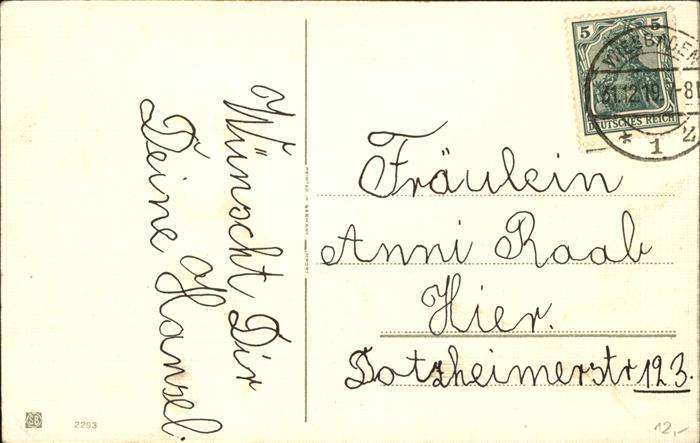 Wünscht Dir
Deine Hansel.
5 5
DEUTSCHES REICH
WIESBADEN
31.12.19. 7-8
* 1 *
Fräulein
Anni Raab
Hier.
Dotzheimerstr 123.
2293
12,-